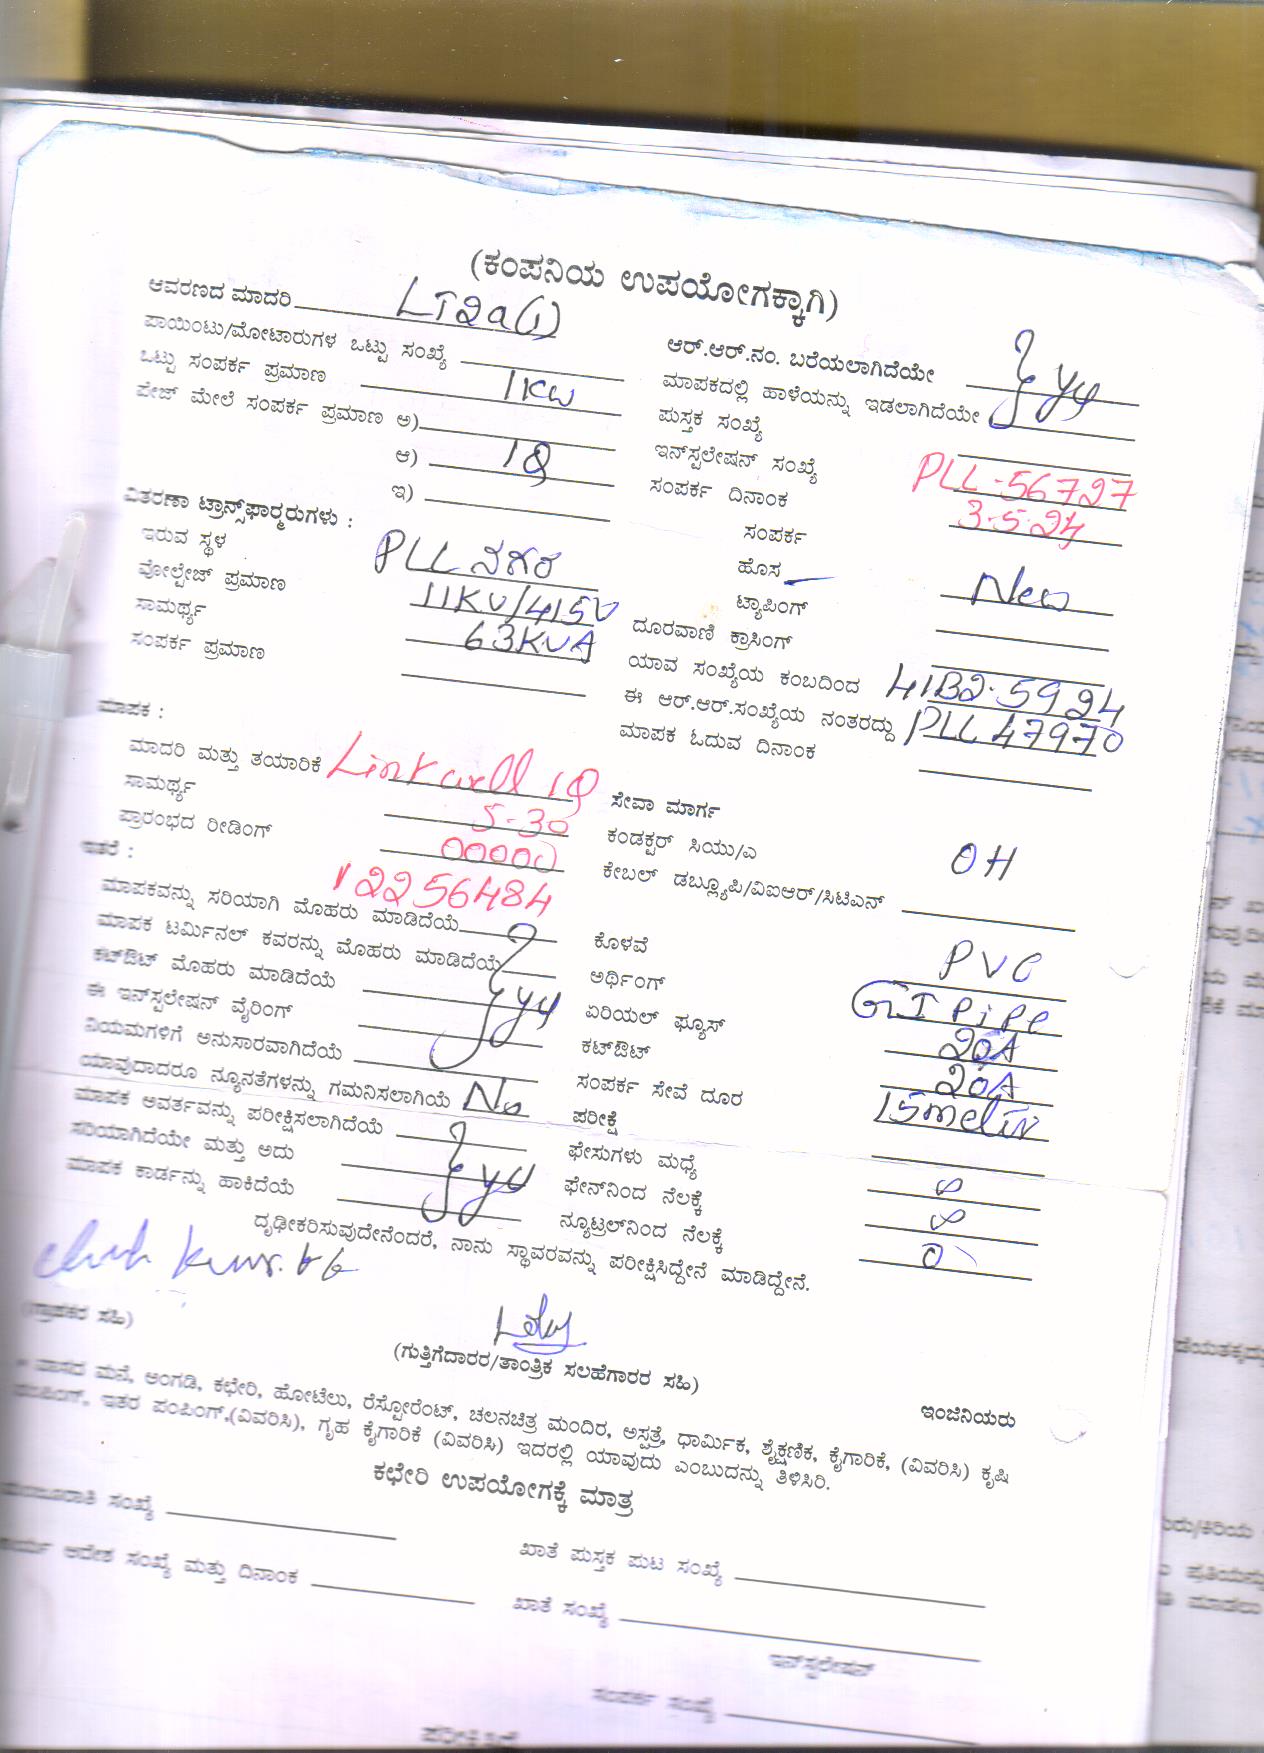 (ಕಂಪನಿಯ ಉಪಯೋಗಕ್ಕಾಗಿ)
ಆವರಣದ ಮಾದರಿ LT2a(1)
ಪಾಯಿಂಟು/ಮೋಟಾರುಗಳ ಒಟ್ಟು ಸಂಖ್ಯೆ
ಒಟ್ಟು ಸಂಪರ್ಕ ಪ್ರಮಾಣ 1KW
ಪೇಜ್ ಮೇಲೆ ಸಂಪರ್ಕ ಪ್ರಮಾಣ ಅ)
ಆ) 1Φ
ಇ)
ವಿತರಣಾ ಟ್ರಾನ್ಸ್‌ಫಾರ್‍ಮರುಗಳು :
ಇರುವ ಸ್ಥಳ PLL ನಗರ
ವೋಲ್ಟೇಜ್ ಪ್ರಮಾಣ 11KV/415V
ಸಾಮರ್ಥ್ಯ 63KVA
ಸಂಪರ್ಕ ಪ್ರಮಾಣ
ಮಾಪಕ :
ಮಾದರಿ ಮತ್ತು ತಯಾರಿಕೆ Linkwell 1Φ
ಸಾಮರ್ಥ್ಯ 5-30
ಪ್ರಾರಂಭದ ರೀಡಿಂಗ್ 00000
ಇತರೆ : 12256484
ಮಾಪಕವನ್ನು ಸರಿಯಾಗಿ ಮೊಹರು ಮಾಡಿದೆಯೆ
ಮಾಪಕ ಟರ್ಮಿನಲ್ ಕವರನ್ನು ಮೊಹರು ಮಾಡಿದೆಯೆ
ಕಟ್‌ಔಟ್ ಮೊಹರು ಮಾಡಿದೆಯೆ
ಈ ಇನ್‌ಸ್ಟಲೇಷನ್ ವೈರಿಂಗ್
ನಿಯಮಗಳಿಗೆ ಅನುಸಾರವಾಗಿದೆಯೆ
ಯಾವುದಾದರೂ ನ್ಯೂನತೆಗಳನ್ನು ಗಮನಿಸಲಾಗಿಯೆ No
ಮಾಪಕ ಅವರ್ತವನ್ನು ಪರೀಕ್ಷಿಸಲಾಗಿದೆಯೆ
ಸರಿಯಾಗಿದೆಯೇ ಮತ್ತು ಅದು
ಮಾಪಕ ಕಾರ್ಡನ್ನು ಹಾಕಿದೆಯೆ
ಆರ್.ಆರ್.ನಂ. ಬರೆಯಲಾಗಿದೆಯೇ
ಮಾಪಕದಲ್ಲಿ ಹಾಳೆಯನ್ನು ಇಡಲಾಗಿದೆಯೇ
ಪುಸ್ತಕ ಸಂಖ್ಯೆ
ಇನ್‌ಸ್ಟಲೇಷನ್ ಸಂಖ್ಯೆ PLL-56727
ಸಂಪರ್ಕ ದಿನಾಂಕ 3-5-24
ಸಂಪರ್ಕ
ಹೊಸ New
ಟ್ಯಾಪಿಂಗ್
ದೂರವಾಣಿ ಕ್ರಾಸಿಂಗ್
ಯಾವ ಸಂಖ್ಯೆಯ ಕಂಬದಿಂದ 41B2-5924
ಈ ಆರ್.ಆರ್.ಸಂಖ್ಯೆಯ ನಂತರದ್ದು PLL 47970
ಮಾಪಕ ಓದುವ ದಿನಾಂಕ
ಸೇವಾ ಮಾರ್ಗ
ಕಂಡಕ್ಟರ್ ಸಿಯು/ಎ OH
ಕೇಬಲ್ ಡಬ್ಲ್ಯೂಪಿ/ವಿಐಆರ್/ಸಿಟಿಎನ್
ಕೊಳವೆ PVC
ಅರ್ಥಿಂಗ್ GI Pipe
ಏರಿಯಲ್ ಫ್ಯೂಸ್ 20A
ಕಟ್‌ಔಟ್ 20A
ಸಂಪರ್ಕ ಸೇವೆ ದೂರ
ಪರೀಕ್ಷೆ
ಫೇಸುಗಳು ಮಧ್ಯೆ ∞
ಫೇನ್‌ನಿಂದ ನೆಲಕ್ಕೆ ∞
ನ್ಯೂಟ್ರಲ್‌ನಿಂದ ನೆಲಕ್ಕೆ 0
ದೃಢೀಕರಿಸುವುದೇನೆಂದರೆ, ನಾನು ಸ್ಥಾವರವನ್ನು ಪರೀಕ್ಷಿಸಿದ್ದೇನೆ ಮಾಡಿದ್ದೇನೆ.
(ಗ್ರಾಹಕರ ಸಹಿ)
(ಗುತ್ತಿಗೆದಾರರ/ತಾಂತ್ರಿಕ ಸಲಹೆಗಾರರ ಸಹಿ)
ಇಂಜಿನಿಯರು
* ವಾಸದ ಮನೆ, ಅಂಗಡಿ, ಕಛೇರಿ, ಹೋಟೆಲು, ರೆಸ್ಟೋರೆಂಟ್, ಚಲನಚಿತ್ರ ಮಂದಿರ, ಅಸ್ಪತ್ರೆ, ಧಾರ್ಮಿಕ, ಶೈಕ್ಷಣಿಕ, ಕೈಗಾರಿಕೆ, (ವಿವರಿಸಿ) ಕೃಷಿ
ಪಂಪಿಂಗ್, ಇತರ ಪಂಪಿಂಗ್,(ವಿವರಿಸಿ), ಗೃಹ ಕೈಗಾರಿಕೆ (ವಿವರಿಸಿ) ಇದರಲ್ಲಿ ಯಾವುದು ಎಂಬುದನ್ನು ತಿಳಿಸಿರಿ.
ಕಛೇರಿ ಉಪಯೋಗಕ್ಕೆ ಮಾತ್ರ
ಸಂಖ್ಯೆ
ಖಾತೆ ಪುಸ್ತಕ ಪುಟ ಸಂಖ್ಯೆ
ಆದೇಶ ಸಂಖ್ಯೆ ಮತ್ತು ದಿನಾಂಕ
ಖಾತೆ ಸಂಖ್ಯೆ
ಇನ್‌ಸ್ಟಲೇಷನ್
ಸಂಪರ್ಕ ಸಂಖ್ಯೆ